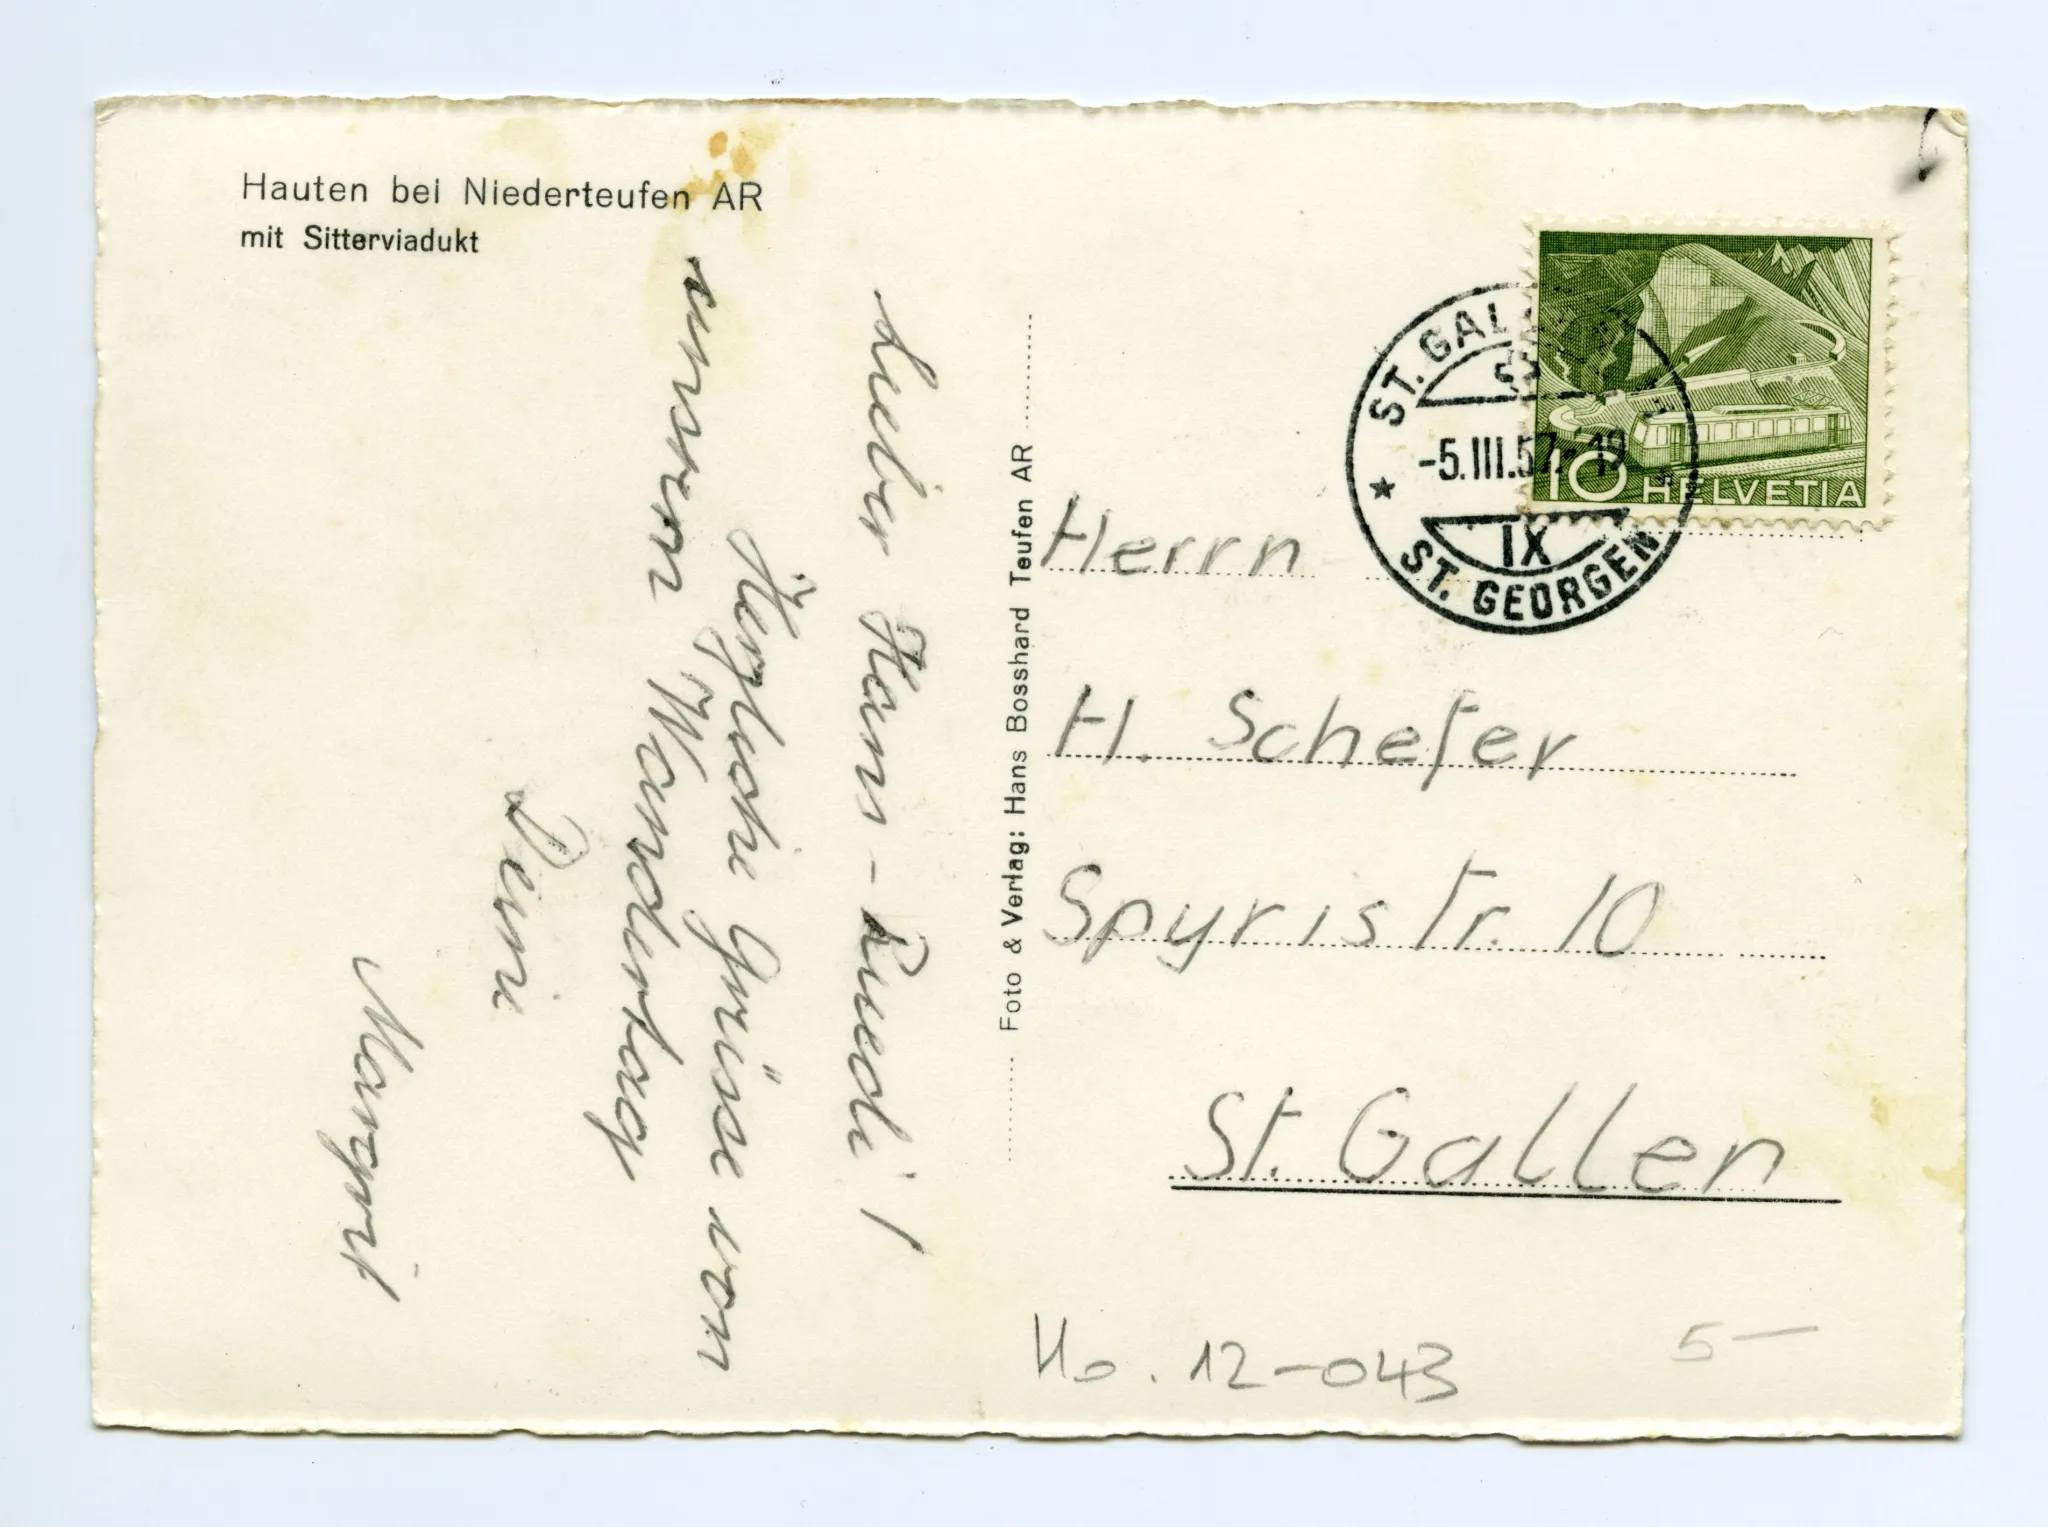 Hauten bei Niederteufen AR
mit Sitterviadukt
Lieber Hans-Ruedi!
Herzliche Grüsse von
unserem Wandertag
Deine
Margrit
Foto & Verlag: Hans Bosshard Teufen AR
HELVETIA
10
ST. GALLEN
-5.III.57.-19
IX
ST. GEORGEN
Herrn
H. Schefer
Spyristr. 10
St. Gallen
Ho. 12-043
5—